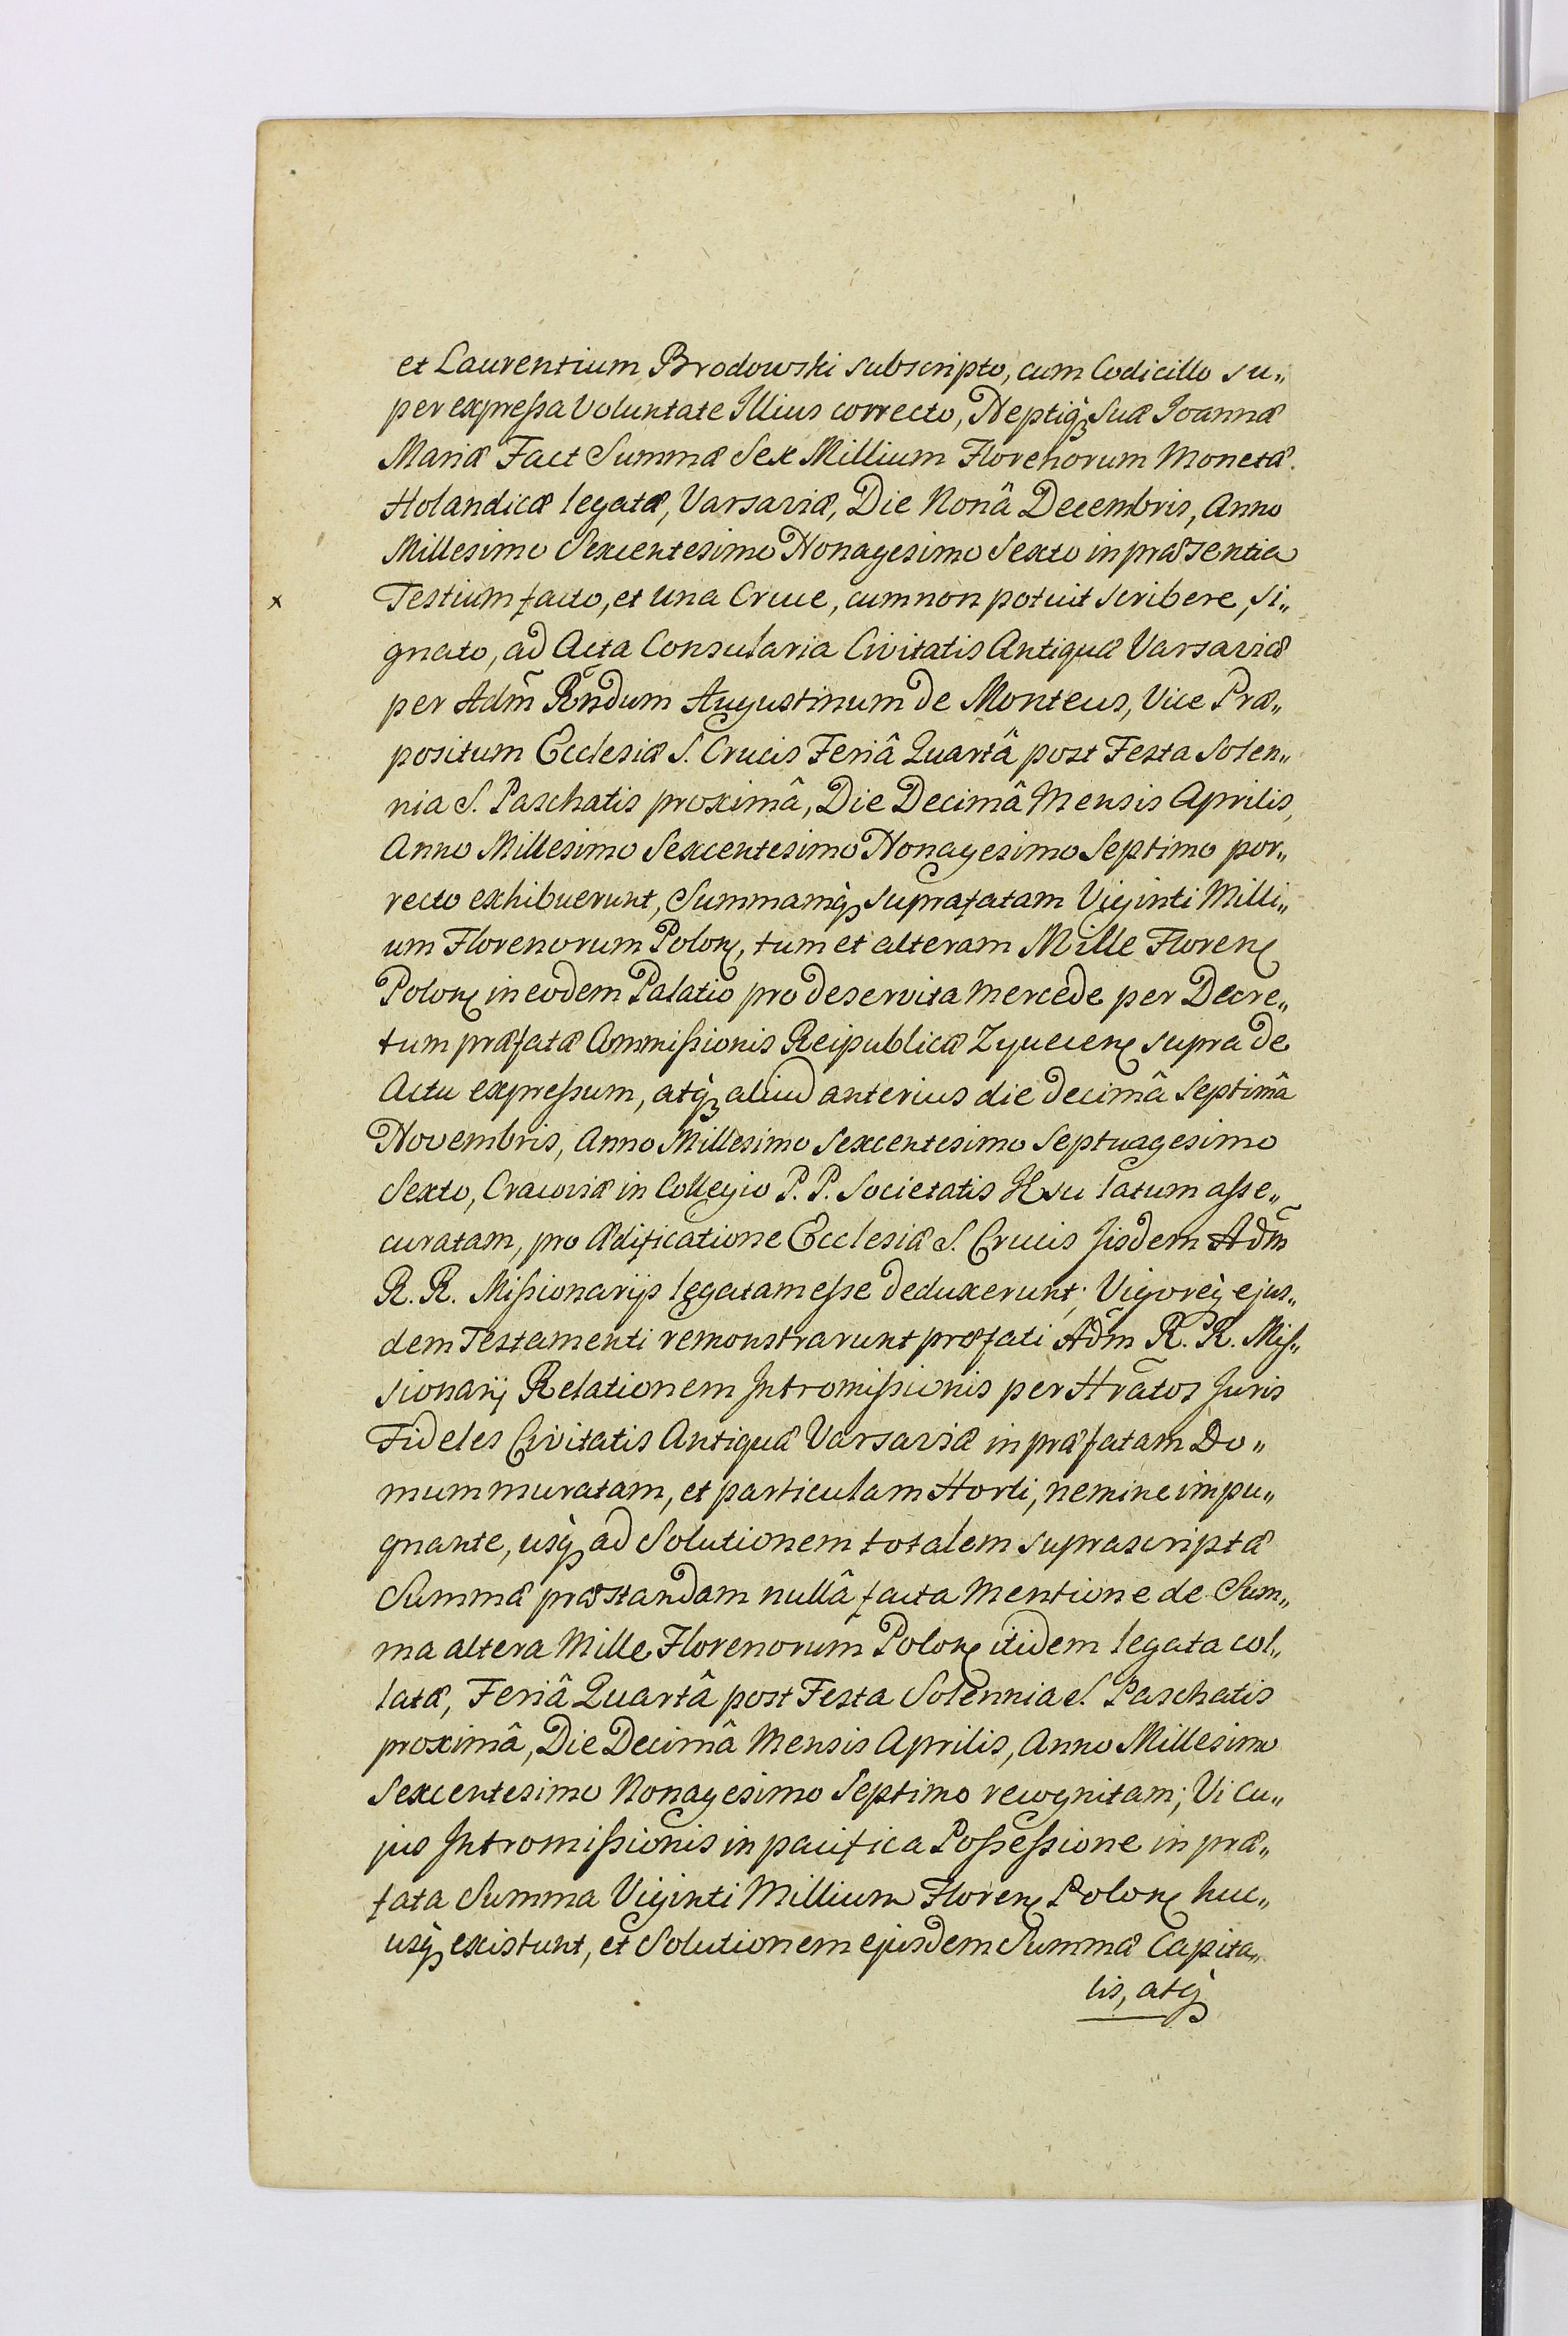 et Laurentium Brodowski subscripto, cum Codicillo su„
per expreſsa Voluntate Illius correcto, Neptiq̀ꝫ Suæ Joannæ
Mariæ Fact Summæ Sex Millium Florenorum Monetæ
Holandicæ legatæ, Varsaviæ, Die Nonâ Decembris, Anno
Millesimo Sexcentesimo Nonagesimo Sexto in præsentia
x Testium facto, et una Cruce, cum non potuit scribere, si„
gnato, ad Acta Consularia Civitatis Antiquæ Varsaviæ
per Adm̃ Rñdum Augustinum de Monteus, Vice Præ„
positum Ecclesiæ S. Crucis Feriâ Quartâ post Festa Solen„
nia S. Paschatis proximâ, Die Decimâ Mensis Aprilis,
Anno Millesimo Sexcentesimo Nonagesimo Septimo por„
recto exhibuerunt, Summamq̀ꝫ suprafatam Viginti Milli„
um Florenorum Polonꝭ, tum et alteram Mille Florenꝭ
Polonꝭ in eodem Palatio pro deservita Mercede per Decre„
tum præfatæ Commiſsionis Reipublicæ Zyvecenꝭ supra de
Actu expreſsum, atq̀ꝫ aliud anterius die decimâ Septimâ
Novembris, Anno Millesimo Sexcentesimo Septuagesimo
Sexto, Cracoviæ in Collegio P. P. Societatis Jesu latum aſse„
curatam, pro Ædificatione Ecclesiæ S. Crucis Jisdem Adm̃
R. R. Miſsionarijs legatam eſse deduxerunt; Vigoreq̀ ejus„
dem Testamenti remonstrarunt præfati Adm̃ R. R. Miſ„
sionarij Relationem Intromiſsionis per Hrãtos Juris
Fideles Civitatis Antiquæ Varsaviæ in præfatam Do„
mum muratam, et particulam Horti, nemine impu„
gnante, usq̀ꝫ ad Solutionem totalem suprascriptæ
Summæ præstandam nullâ facta Mentione de Sum„
ma altera Mille Florenorum Polonꝭ itidem legata col„
latæ, Feriâ Quartâ post Festa Solennia S. Paschatis
proximâ, Die Decimâ Mensis Aprilis, Anno Millesimo
Sexcentesimo Nonagesimo Septimo recognitam; Vi Cu„
jus Intromiſsionis in pacifica Poſseſsione in præ„
fata Summa Viginti Millium Florenꝭ Polonꝭ huc„
usq̀ꝫ existunt, et Solutionem ejusdem Summæ Capita„
lis, atq̀ꝫ